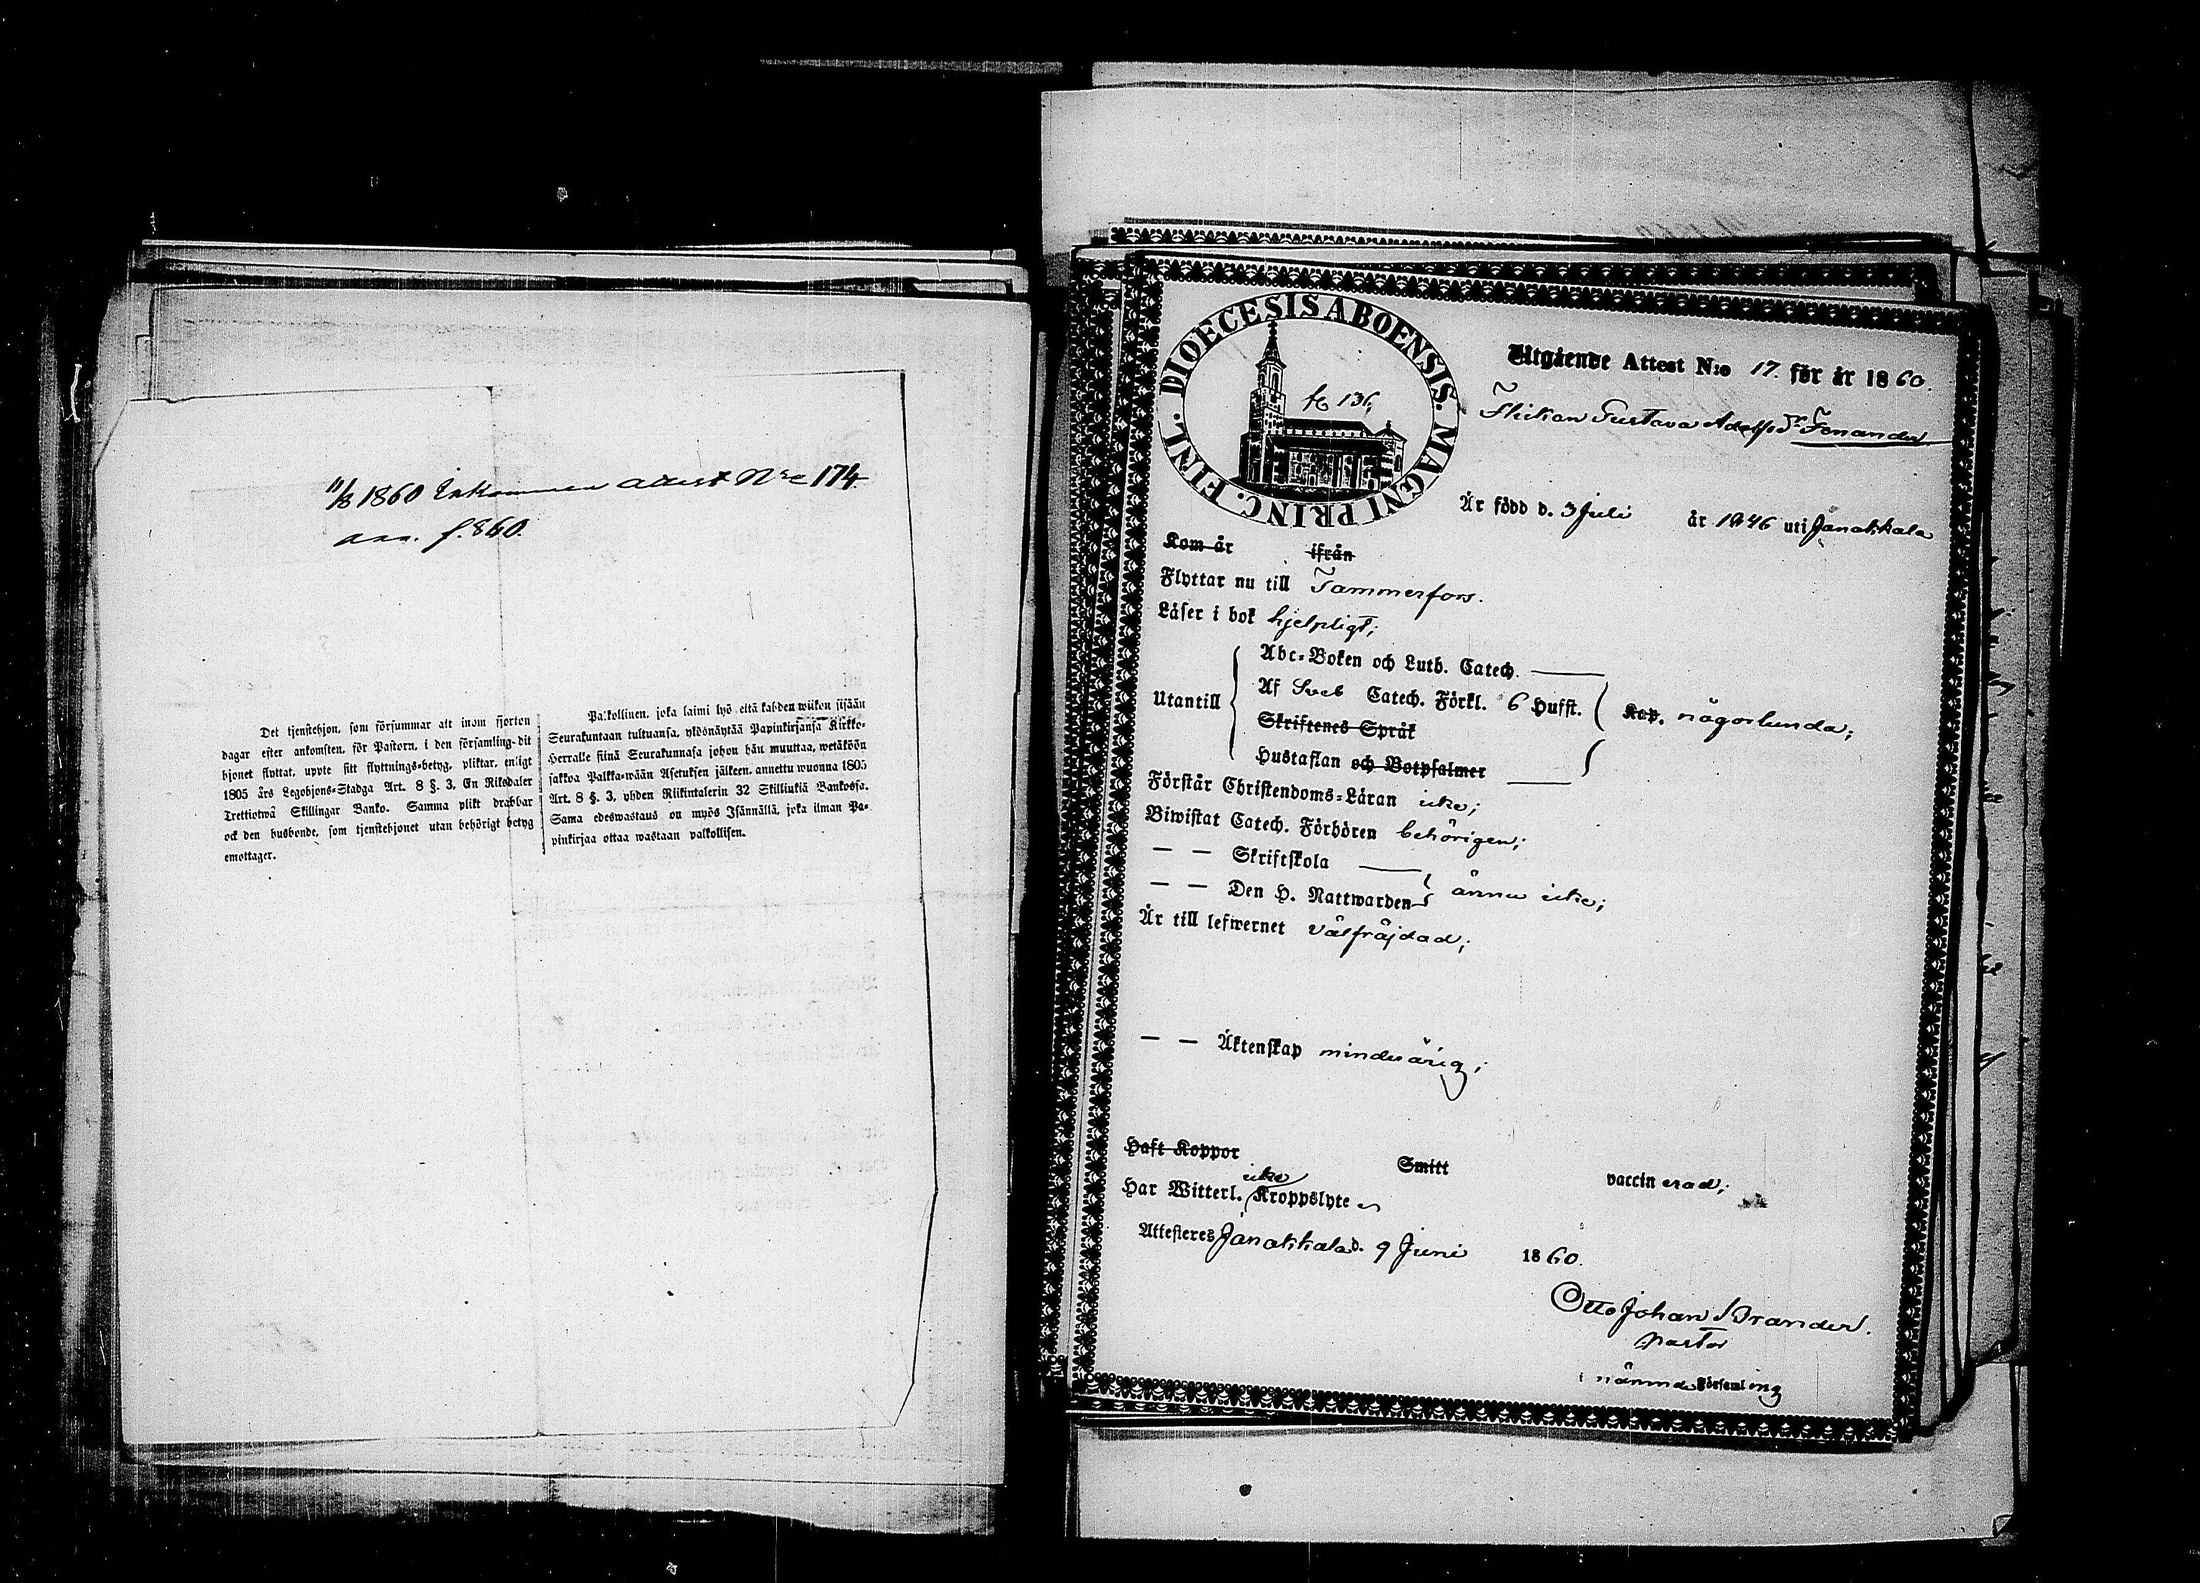 11/8 1860 Inkommen attest Nro 174
f. 860.
Det tjenstehjon, som försummar att inom fjorton
dagar efter ankomsten, för Pastorn, i den församling dit
hjonet flyttat, uppte sitt flyttnings-betyg, pliktar, enligt
1805 års Legohjons-Stadga Art. 8 §. 3, En Riksdaler
Trettiotwå Skillingar Banko. Samma plikt drabbar
ock den husbonde, som tjenstehjonet utan behörigt betyg
emottager.
Palkollinen, joka laimi lyö, että kahden wiikon sisään
Seurakuntaan tultuansa, ylösnäytää Papinkirjansa Kirkko-
Herralle siinä Seurakunnasa johon hän muuttaa, wetäköön
sakkoa Palkka-wään Asetuksen jälkeen, annettu wuonna 1805
Art. 8 §. 3, yhden Riikintalerin 32 Skillinkiä Bankossa.
Sama edeswastaus on myös Isännällä, joka ilman Pa-
pinkirjaa ottaa wastaan palkollisen.
DIOECESIS ABOENSIS. MAGNI PRINC. FINL.
fo 136,
Utgående Attest N:o 17. för år 1860.
Flickan Gustava Adolfsdr Fonander
Är född d. 3 Juli år 1846 uti Janakkala
Kom år ifrån
Flyttar nu till Tammerfors.
Läser i bok hjelpligt;
Utantill
Abc-Boken och Luth. Catech.
Af Sveb Catech. Förkl. 6 Hufst.
Kap. någorlunda;
Skriftenes Språk
Hustaflan och Botpsalmer
Förstår Christendoms-Läran icke;
Biwistat Catech. Förhören behörigen;
— — Skriftskola
— — Den H. Nattwarden ännu icke;
Är till lefwernet välfräjdad;
— — Äktenskap minderårig;
Haft Koppor Smitt vaccinerad;
Har Witterl. icke Kroppslyte
Attesteres Janakkala d. 9 Juni 1860.
Otto Johan Brander.
Pastor
i nämnde Församling